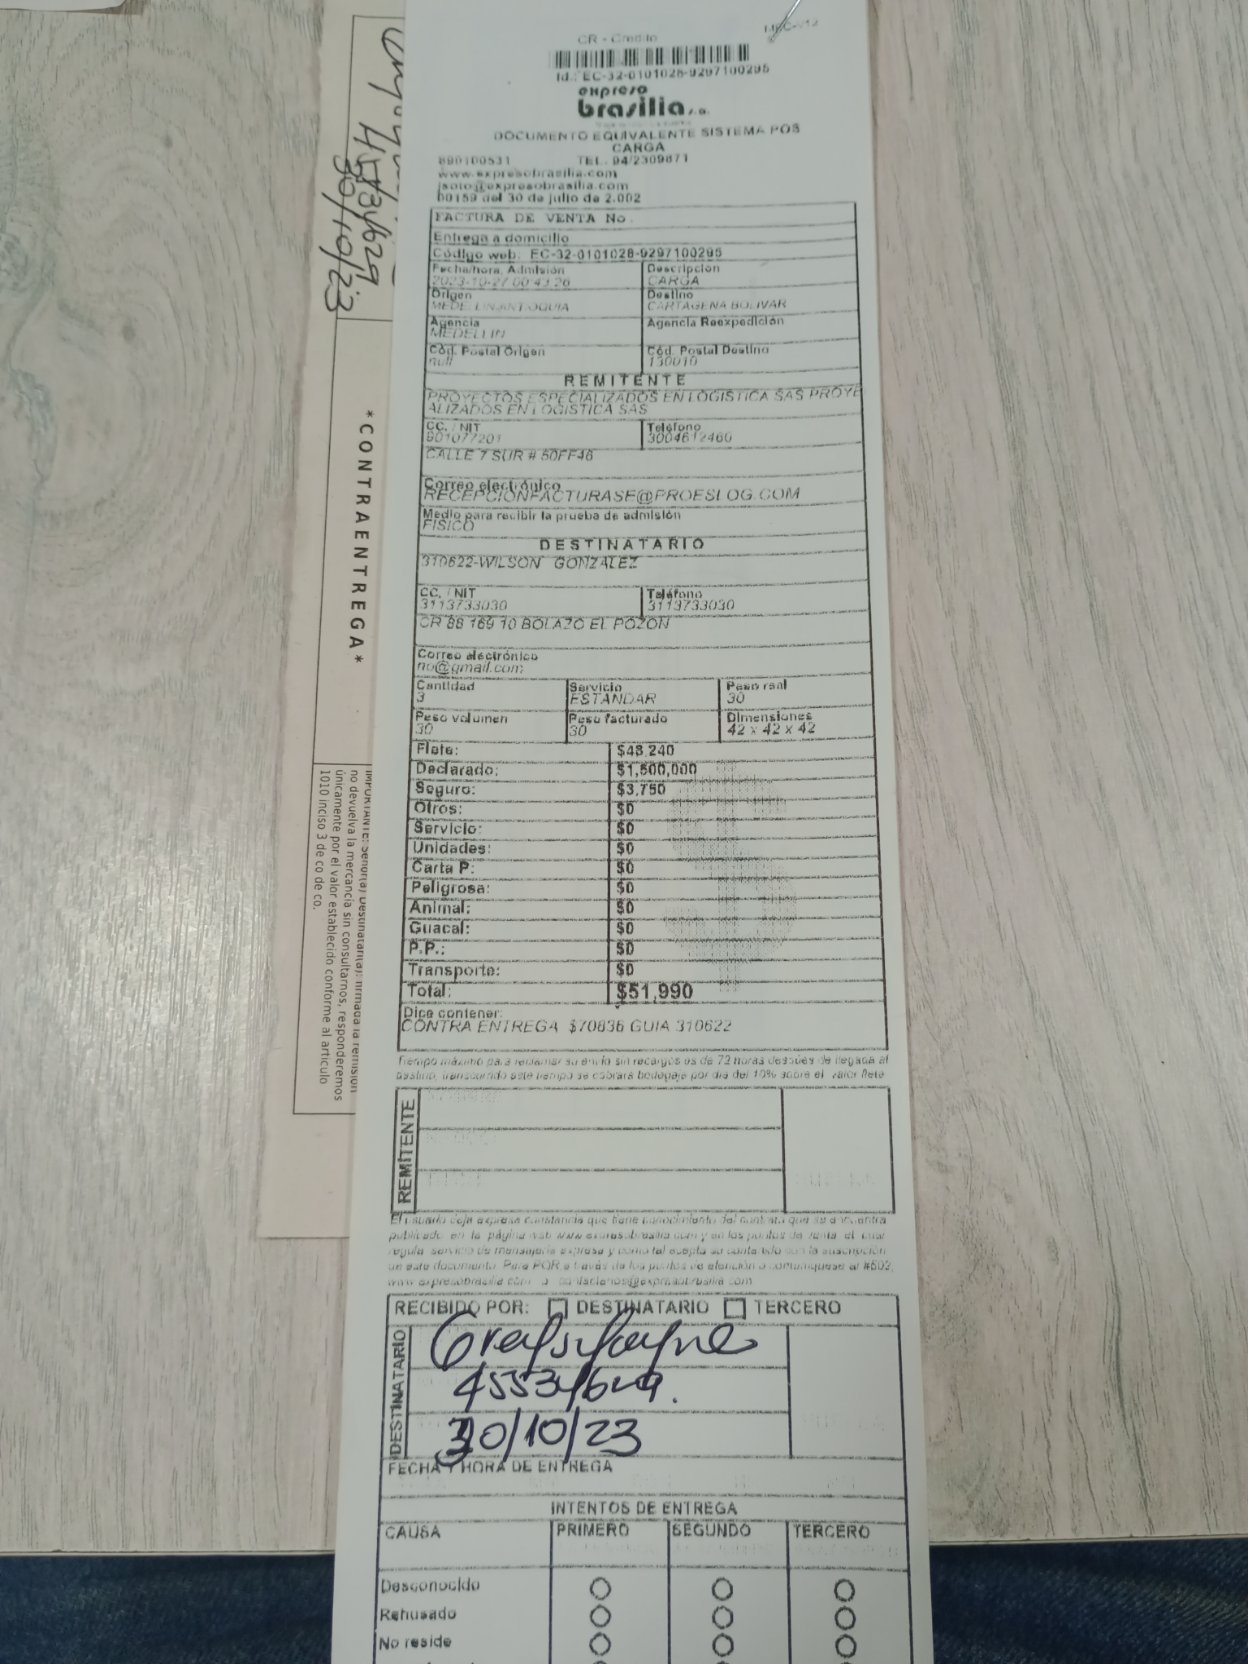 CR - Credito
Id.: EC-32-0101028-9297100295
expreso
brasilia s.a.
DOCUMENTO EQUIVALENTE SISTEMA POS
CARGA
890100531 TEL. 94/2309871
www.expresobrasilia.com
jsoto@expresobrasilia.com
00159 del 30 de julio de 2.002
FACTURA DE VENTA No.
Entrega a domicilio
Código web: EC-32-0101028-9297100295
Fecha/hora Admisión Descripción
2023-10-27 00:43:26 CARGA
Origen Destino
MEDELLIN ANTIOQUIA CARTAGENA BOLIVAR
Agencia Agencia Reexpedición
MEDELLIN
Cód. Postal Origen Cód. Postal Destino
null 130010
REMITENTE
PROYECTOS ESPECIALIZADOS EN LOGISTICA SAS PROYE
ALIZADOS EN LOGISTICA SAS
CC. / NIT Teléfono
901077201 3004612460
CALLE 7 SUR # 50FF46
Correo electrónico
RECEPCIONFACTURASE@PROESLOG.COM
Medio para recibir la prueba de admisión
FISICO
DESTINATARIO
310622-WILSON GONZALEZ
CC. / NIT Teléfono
3113733030 3113733030
CR 88 169 10 BOLAZO EL POZON
Correo electrónico
no@gmail.com
Cantidad Servicio Peso real
3 ESTANDAR 30
Peso volumen Peso facturado Dimensiones
30 30 42 x 42 x 42
Flete: $48,240
Declarado: $1,500,000
Seguro: $3,750
Otros: $0
Servicio: $0
Unidades: $0
Carta P: $0
Peligrosa: $0
Animal: $0
Guacal: $0
P.P.: $0
Transporte: $0
Total: $51,990
Dice contener:
CONTRA ENTREGA $70836 GUIA 310622
Tiempo máximo para reclamar su envío sin recargos es de 72 horas después de llegada al
destino, transcurrido este tiempo se cobrará bodegaje por día del 10% sobre el valor flete
REMITENTE
El usuario deja expresa constancia que tiene conocimiento del contrato que se encuentra
publicado en la página web www.expresobrasilia.com y en los puntos de venta el cual
regula servicio de mensajería expresa y como tal acepta su contenido con la suscripción
de este documento. Para PQR a través de los puntos de atención o comuniquese al #502,
www.expresobrasilia.com
RECIBIDO POR: DESTINATARIO TERCERO
DESTINATARIO
30/10/23
FECHA Y HORA DE ENTREGA
INTENTOS DE ENTREGA
CAUSA PRIMERO SEGUNDO TERCERO
Desconocido
Rehusado
No reside
30/10/23
*CONTRAENTREGA*
IMPORTANTE: Señor(a) Destinatario(a): firmada la remisión
no devuelva la mercancía sin consultarnos, responderemos
únicamente por el valor establecido conforme al artículo
1010 inciso 3 de co de co.